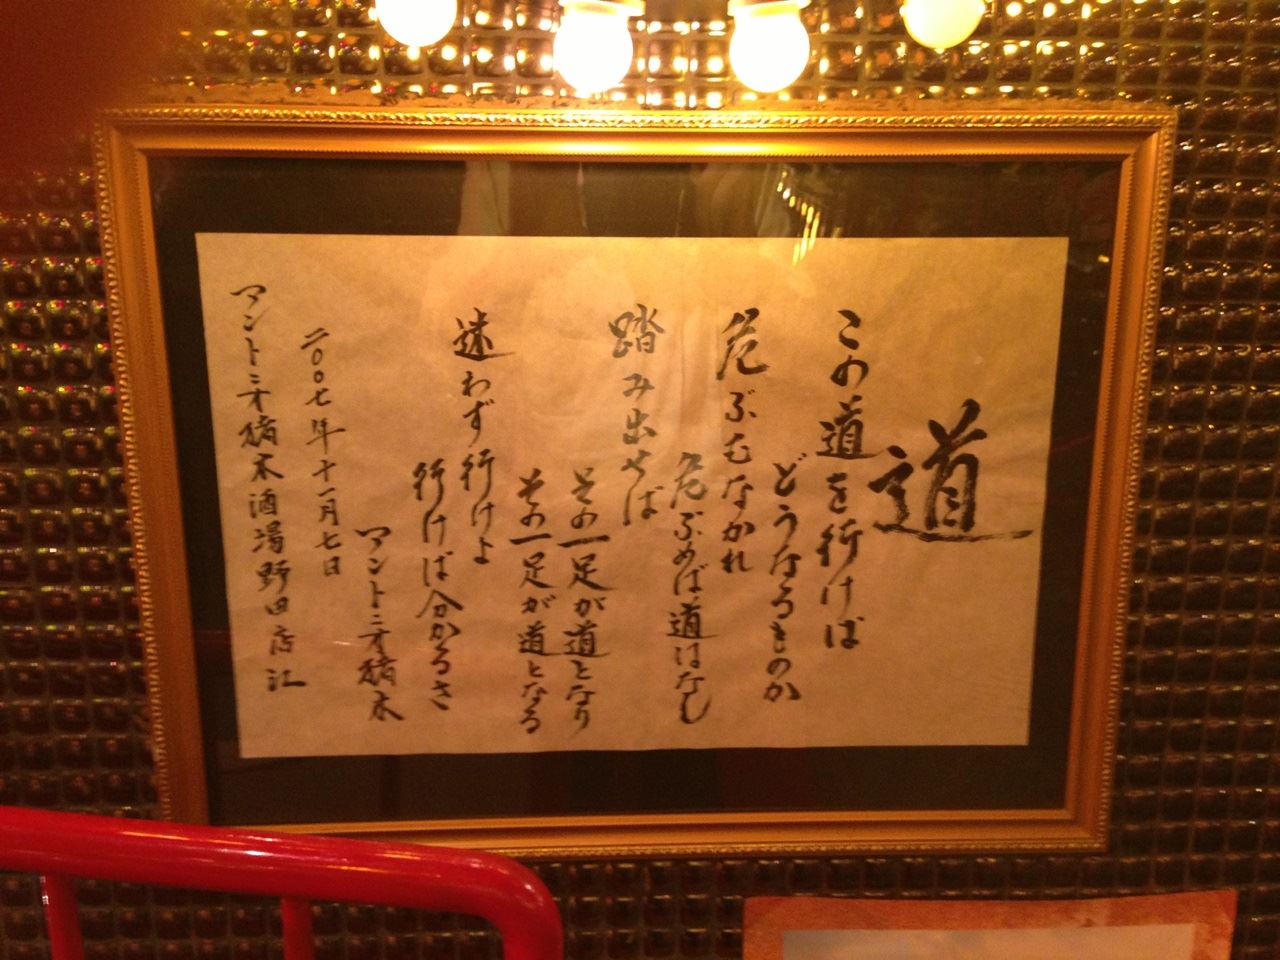 道
この道を行けば
どうなるものか
危ぶむなかれ
危ぶめば道はなし
踏み出せば
その一足が道となり
その一足が道となる
迷わず行けよ
行けば分かるさ
アントニオ猪木
二〇〇七年十一月七日
アントニオ猪木酒場野田店江